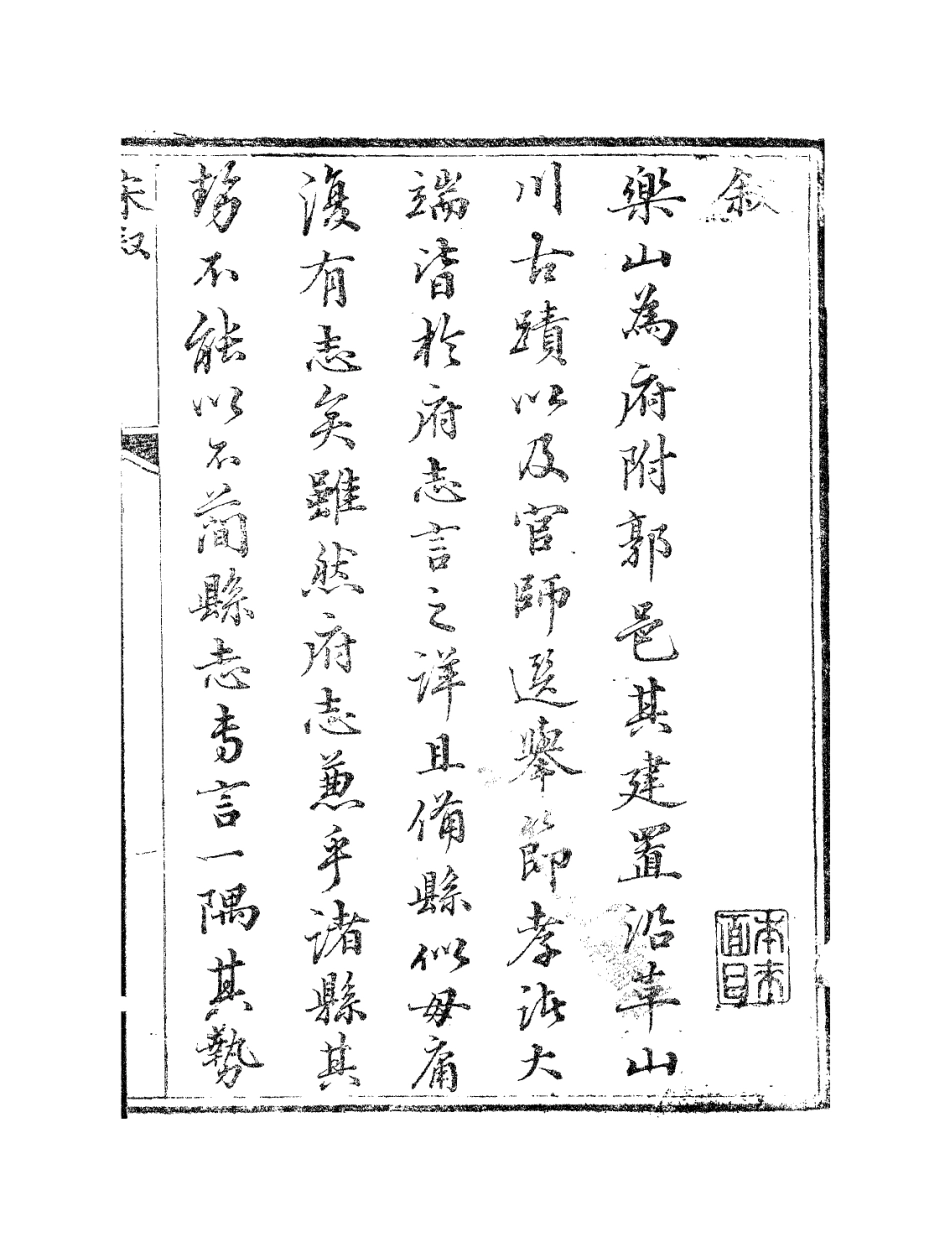 叙
樂山為府附郭邑其建置沿革山
川古蹟以及官師選舉節孝諸大
端皆於府志言之詳且備縣似毋庸
復有志矣雖然府志兼乎諸縣其
勢不能以不簡縣志专言一隅其勢
宋叙
本来面目